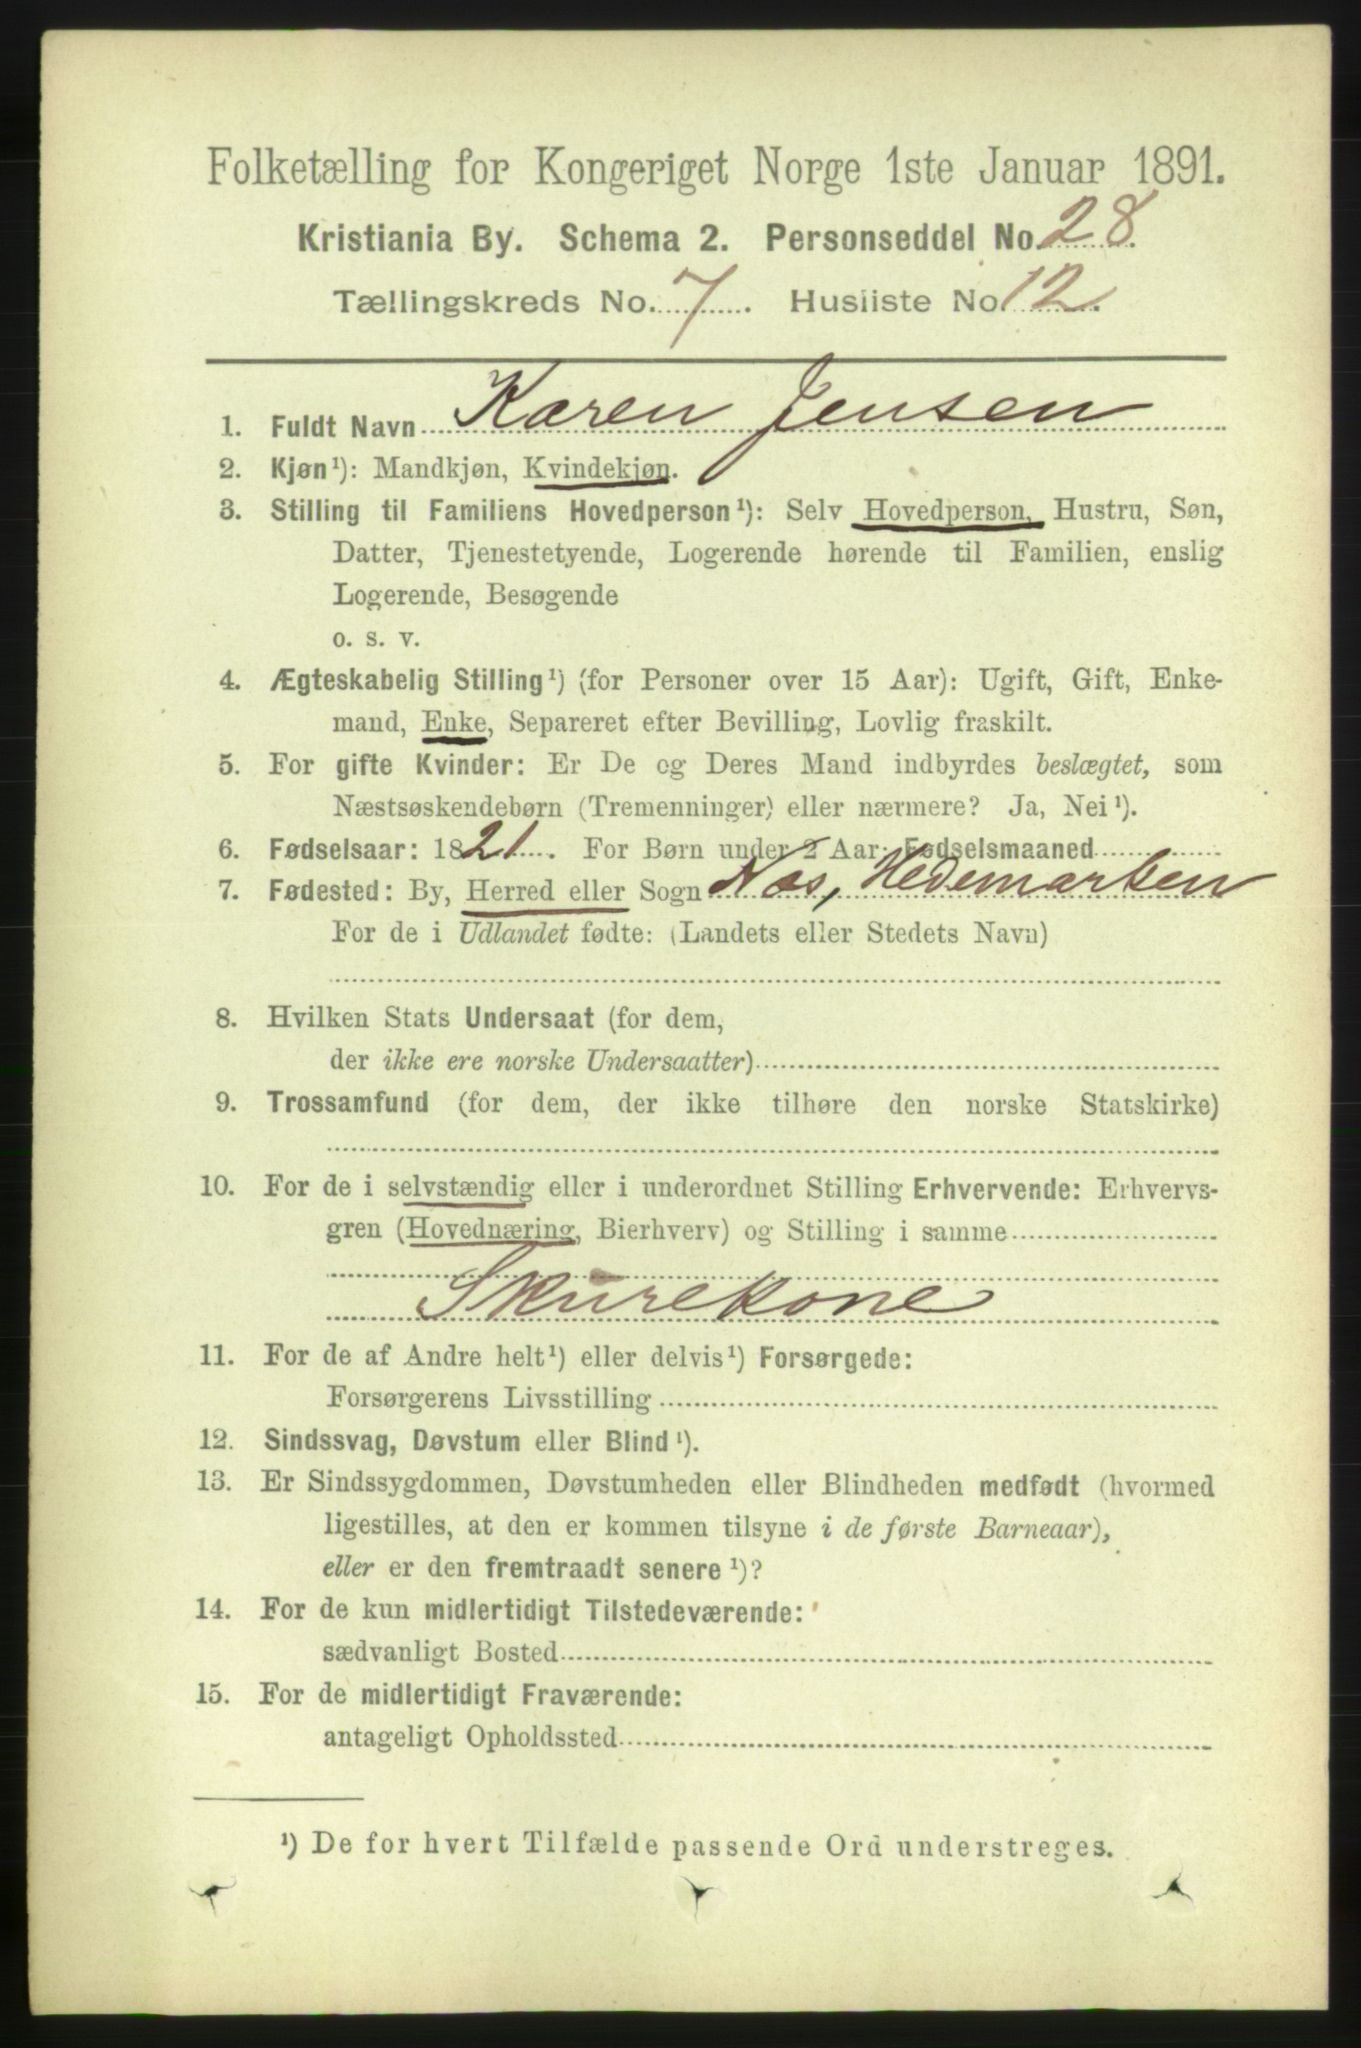 Folketælling for Kongeriget Norge 1ste Januar 1891.
Kristiania By. Schema 2. Personseddel No. 28.
Tællingskreds No. 7. Husliste No 12.
1. Fuldt Navn Karen Jensen
2. Kjøn¹): Mandkjøn, Kvindekjøn.
3. Stilling til Familiens Hovedperson¹): Selv Hovedperson, Hustru, Søn,
Datter, Tjenestetyende, Logerende hørende til Familien, enslig
Logerende, Besøgende
o. s. v.
4. Ægteskabelig Stilling¹) (for Personer over 15 Aar): Ugift, Gift, Enke-
mand, Enke, Separeret efter Bevilling, Lovlig fraskilt.
5. For gifte Kvinder: Er De og Deres Mand indbyrdes beslægtet, som
Næstsøskendebørn (Tremenninger) eller nærmere? Ja, Nei¹).
6. Fødselsaar: 1821. For Børn under 2 Aar: Fødselsmaaned
7. Fødested: By, Herred eller Sogn Næs, Hedemarken
For de i Udlandet fødte: (Landets eller Stedets Navn)
8. Hvilken Stats Undersaat (for dem,
der ikke ere norske Undersaatter)
9. Trossamfund (for dem, der ikke tilhøre den norske Statskirke)
10. For de i selvstændig eller i underordnet Stilling Erhvervende: Erhvervs-
gren (Hovednæring, Bierhverv) og Stilling i samme
Skurekone
11. For de af Andre helt¹) eller delvis¹) Forsørgede:
Forsørgerens Livsstilling
12. Sindssvag, Døvstum eller Blind¹).
13. Er Sindssygdommen, Døvstumheden eller Blindheden medfødt (hvormed
ligestilles, at den er kommen tilsyne i de første Barneaar),
eller er den fremtraadt senere¹)?
14. For de kun midlertidigt Tilstedeværende:
sædvanligt Bosted
15. For de midlertidigt Fraværende:
antageligt Opholdssted
¹) De for hvert Tilfælde passende Ord understreges.